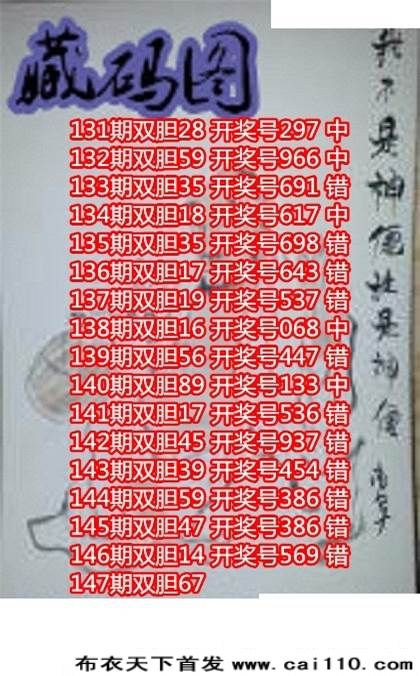 藏码图
131期双胆28 开奖号297 中
132期双胆59 开奖号966 中
133期双胆35 开奖号691 错
134期双胆18 开奖号617 中
135期双胆35 开奖号698 错
136期双胆17 开奖号643 错
137期双胆19 开奖号537 错
138期双胆16 开奖号068 中
139期双胆56 开奖号447 错
140期双胆89 开奖号133 中
141期双胆17 开奖号536 错
142期双胆45 开奖号937 错
143期双胆39 开奖号454 错
144期双胆59 开奖号386 错
145期双胆47 开奖号386 错
146期双胆14 开奖号569 错
147期双胆67
我不是神便胜是神便
布衣天下首发 www.cai110.com